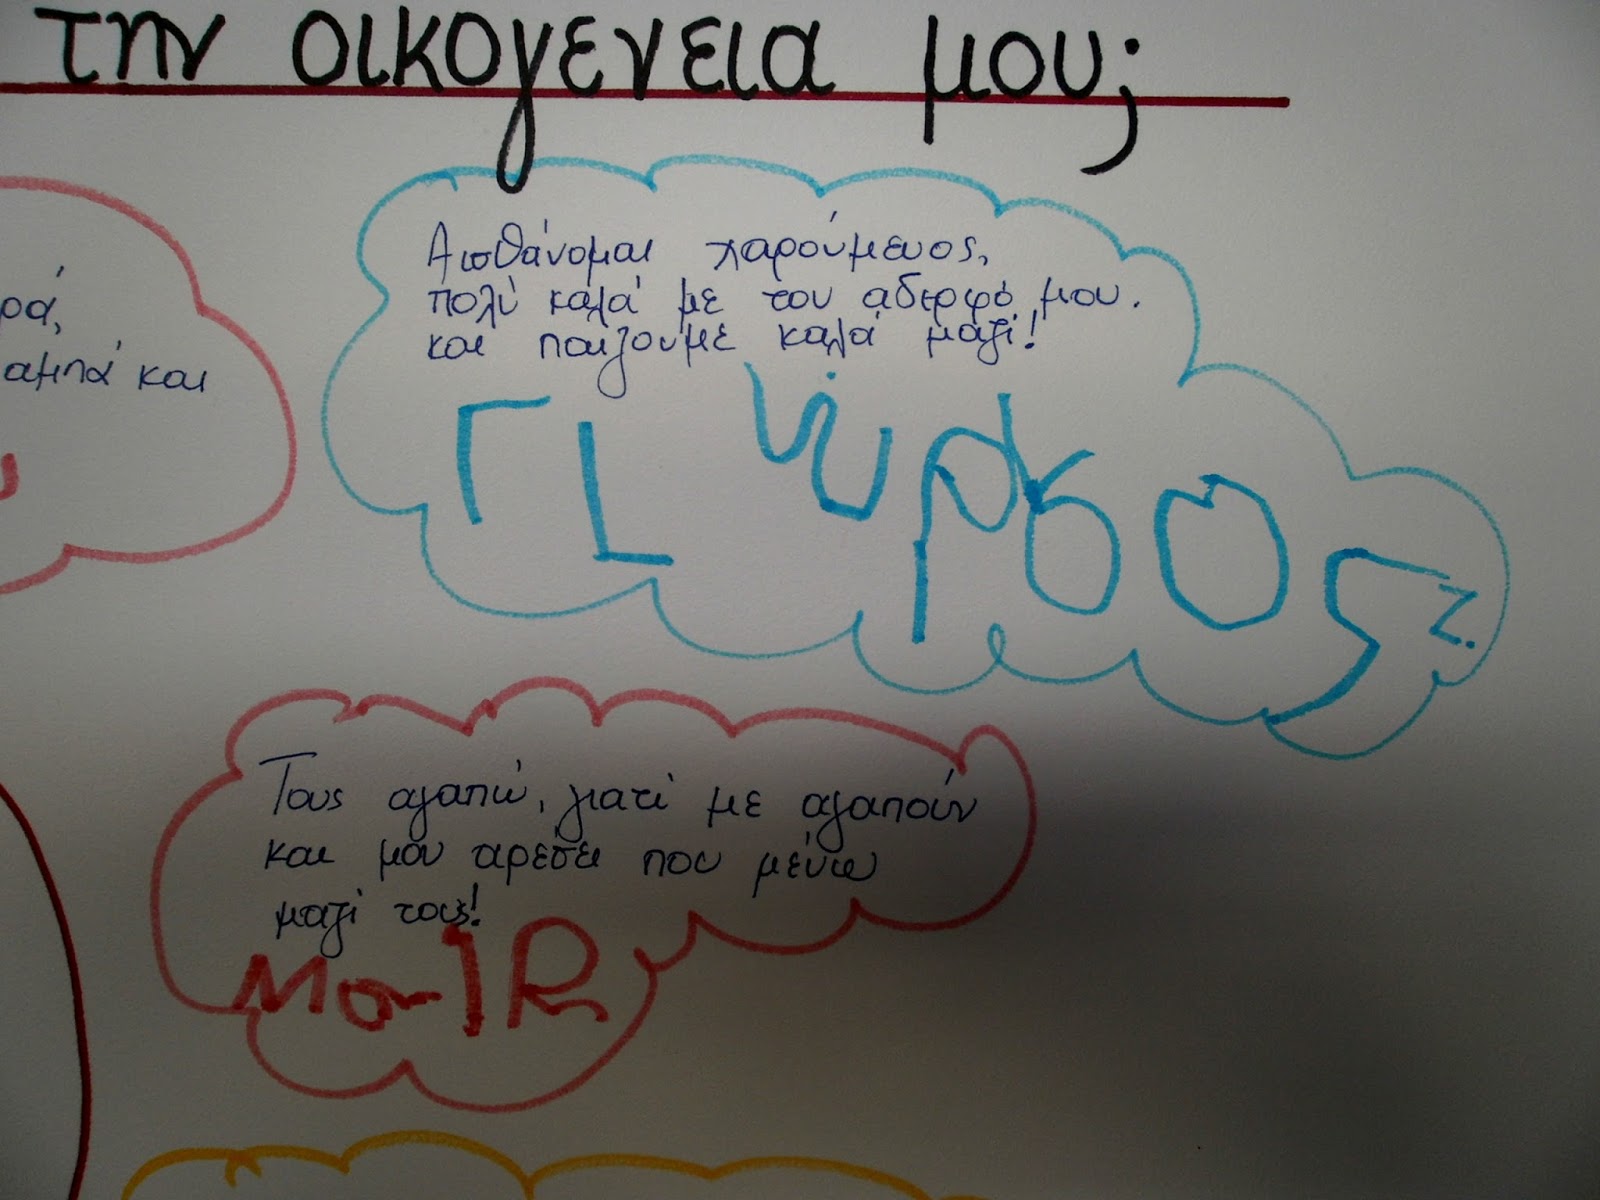 την οικογενεια μου;
ρά,
αμπά και
Αισθάνομαι χαρούμενος,
πολύ καλά με τον αδερφό μου.
και παιζουμε καλά μαζί!
Γιώργος Ζ.
Τους αγαπώ, γιατί με αγαπούν
και μου αρέσει που μένω
μαζί τους!